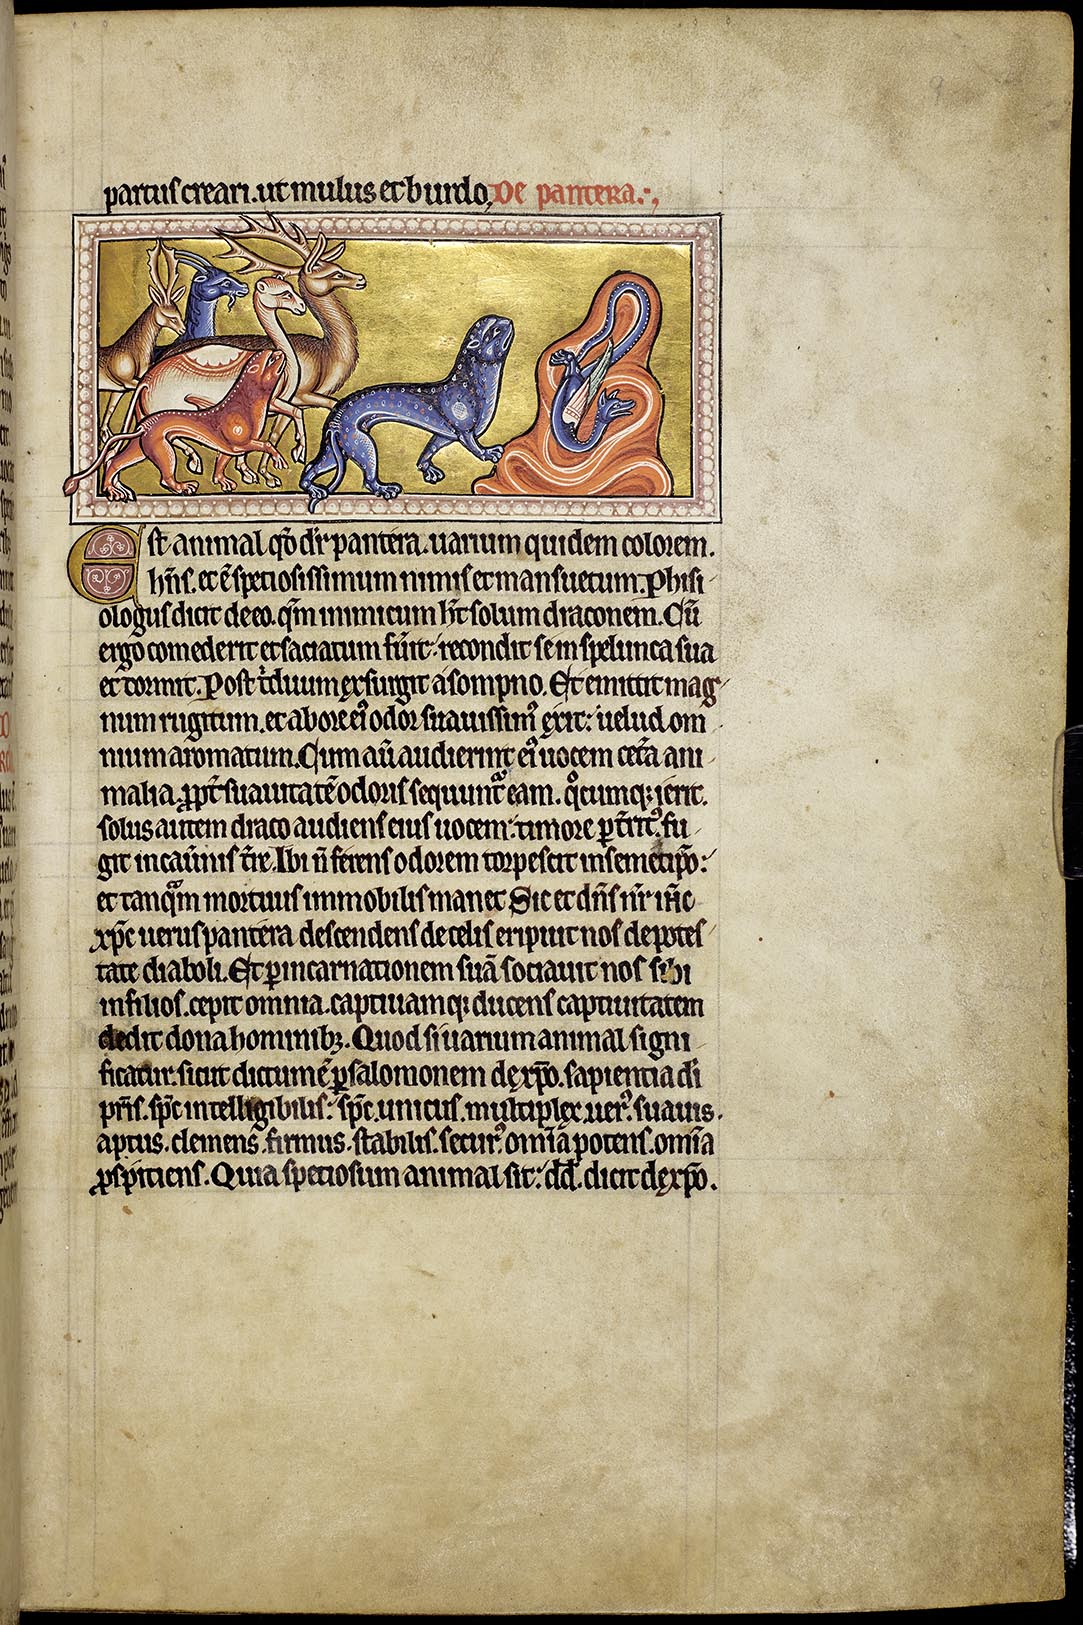 9
partus creari. ut mulus et burdo, De pantera.
Est animal qd̄ dr̄ pantera. uarium quidem colorem.
hn̄s. et ē speciosissimum nimis et mansuetum. Phisi
ologus dicit de eo. qm̄ inimicum ht̄ solum draconem. Cū
ergo comederit et saciatum fūit: recondit se in spelunca sua
et dormit. Post tͥduum exsurgit a sompno. Et emittit mag
num rugitum. et ab ore eiꝰ odor suauissimꝰ exit: uelud om
nium aromatum. Cum aū audierint eiꝰ uocem cet̄a ani
malia. ꝓpt̄ suauitatē odoris sequunt᷑ eam. qͦcumqꝫ ierit.
Solus autem draco audiens eius uocem: timore ꝑt̄ritꝰ. fu
git in cau̅nis t̄re. Ibi n̄ ferens odorem torpescit in semetip̄o:
et tanqͣm mortuus immobilis manet. Sic et dn̄s nr̄ ih̄c
xp̄c uerus pantera descendens de celis eripuit nos de potes
tate diaboli. Et ꝑ incarnationem suā sociauit nos sibi
in filios. cepit omnia. captiuamqꝫ ducens captiuitatem
dedit dona hominibꝫ. Quod si uarium animal signi
ficatur. sicut dictum ē ꝑ salomonem de xp̄o. sapientia dī
pr̄is. sp̄c intelligibilis: sp̄c. unicus. multiplex. uerꝰ. suauis.
aptus. clemens. firmus. stabilis. securꝰ. om̄ia potens. om̄ia
ꝓspiciens. Quia speciosum animal sit: dd̄. dicit de xp̄o.